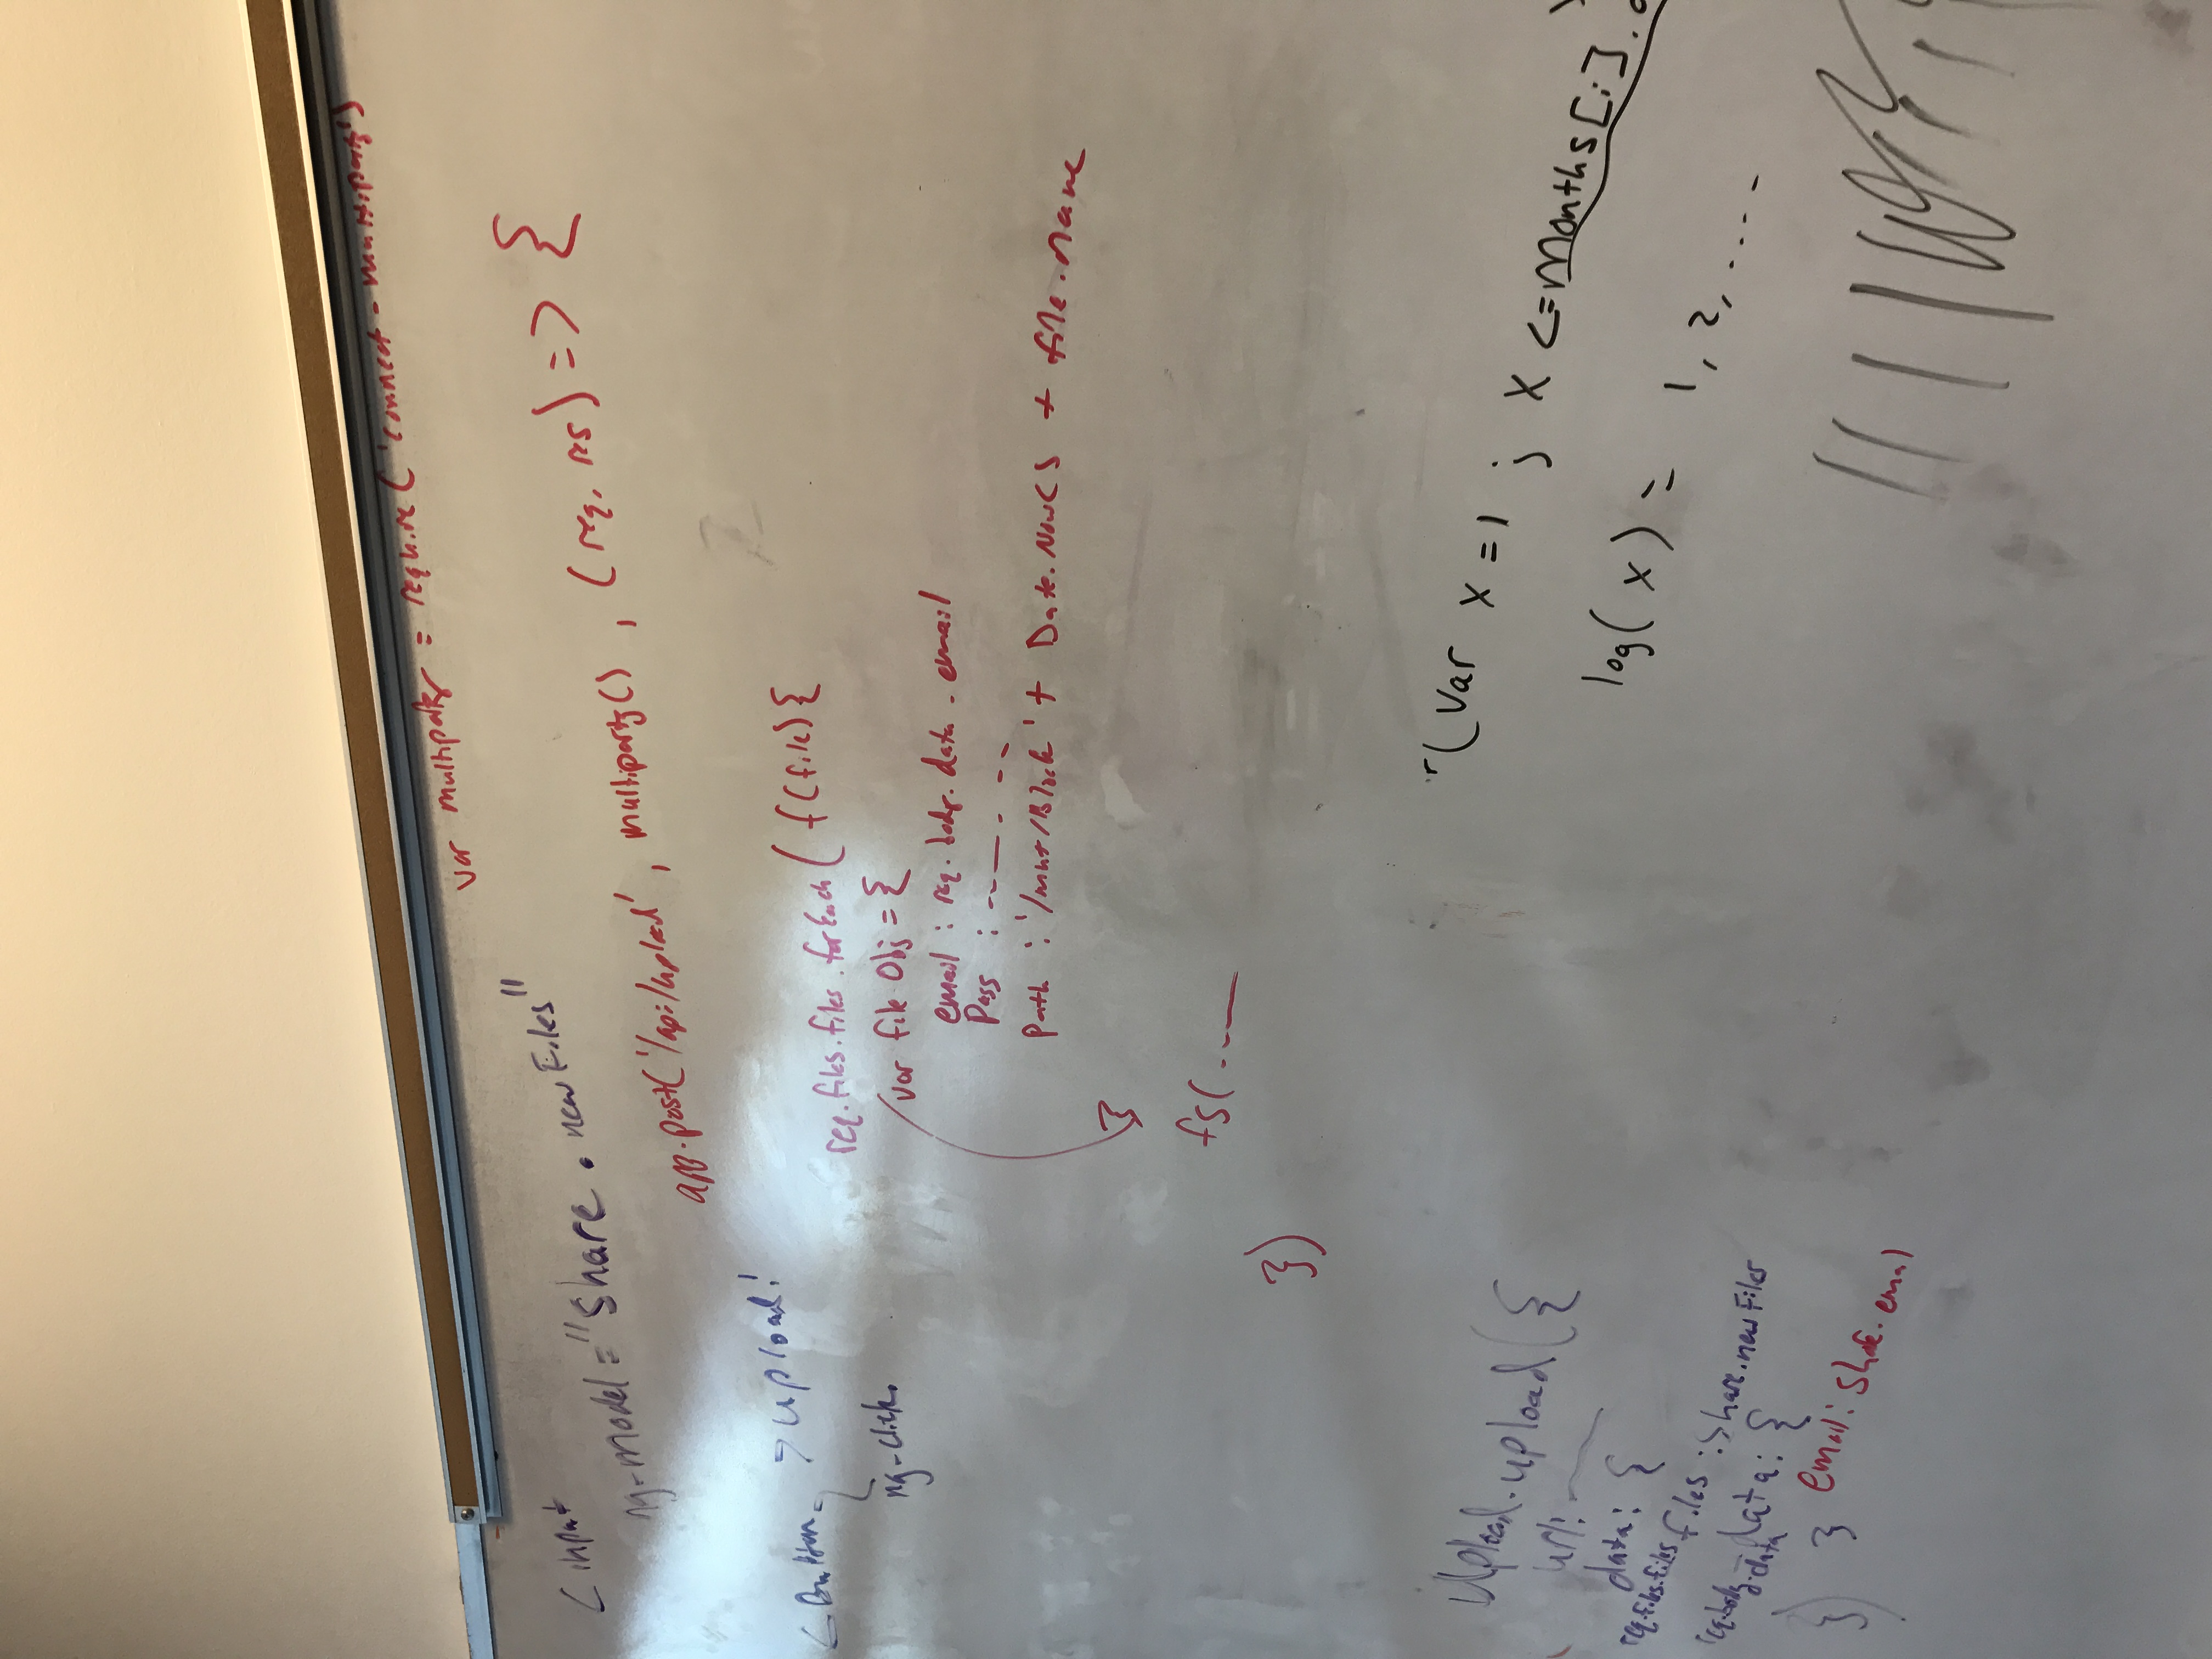 var multiparty = require('connect-multiparty')
<input
ng-model="share.newFiles"
app.post('/api/upload', multiparty(), (req, res) => {
<Button >upload!
ng-click
req.files.files.forEach(f(file){
var fileObj = {
email : req.body.data.email
Pass : ---. --
Path : '/mnt/Block' + Date.Now() + file.name
}
fs(..——
})
Upload.upload({
url: ——
data: {
req.files.files files : share.newFiles
req.body.data data: {
email: share.email
}) }
r(var x=1 ; x <=Months[i].
log(x) = 1, 2, ....